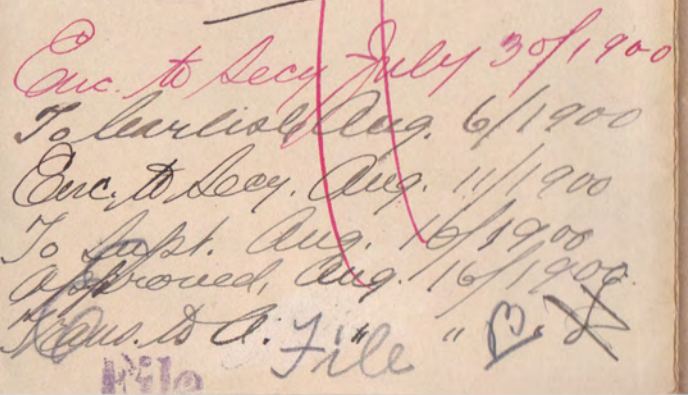 Enc. to Secy July 30/1900
To Carlisle Aug. 6/1900
Enc. to Secy. Aug. 11/1900
To Supt. Aug. 16/1900
Approved, Aug. 16/1900.
Trans. to A. " "
File
File